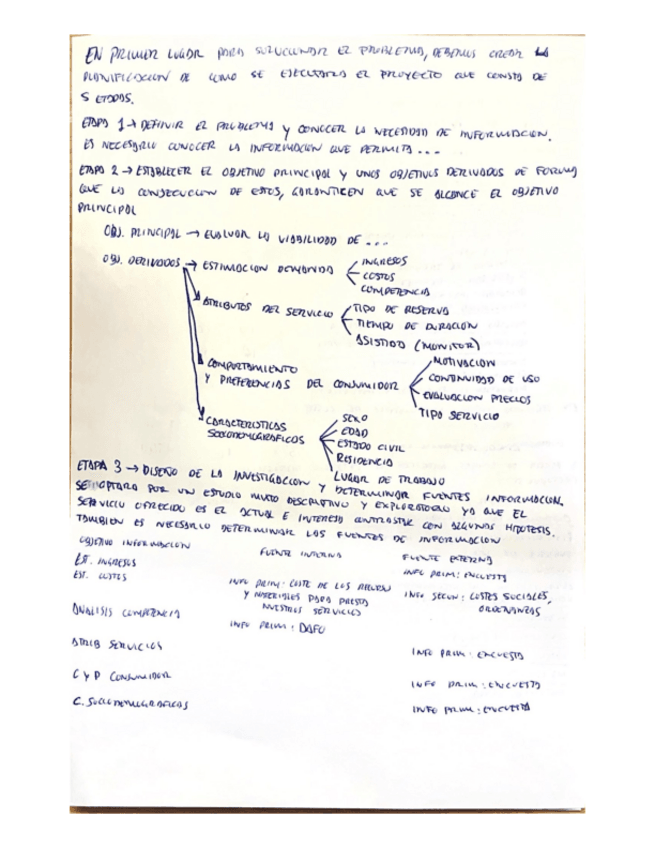 EN PRIMER LUGAR PARA SOLUCIONAR EL PROBLEMA, DEBEMOS CREAR LA
PLANIFICACION DE COMO SE EJECUTARA EL PROYECTO QUE CONSTA DE
5 ETAPAS.
ETAPA 1 → DEFINIR EL PROBLEMA Y CONOCER LA NECESIDAD DE INFORMACION.
ES NECESARIO CONOCER LA INFORMACION QUE PERMITA ...
ETAPA 2 → ESTABLECER EL OBJETIVO PRINCIPAL Y UNOS OBJETIVOS DERIVADOS DE FORMA
QUE LA CONSECUCION DE ESTOS, GARANTICEN QUE SE ALCANCE EL OBJETIVO
PRINCIPAL
OBJ. PRINCIPAL → EVALUAR LA VIABILIDAD DE ...
OBJ. DERIVADOS → ESTIMACION DEMANDA
INGRESOS
COSTOS
COMPETENCIA
ATRIBUTOS DEL SERVICIO
TIPO DE RESERVA
TIEMPO DE DURACION
ASISTIDA (MONITOR)
COMPORTAMIENTO
Y PREFERENCIAS DEL CONSUMIDOR
MOTIVACION
CONTINUIDAD DE USO
EVALUACION PRECIOS
TIPO SERVICIO
CARACTERISTICAS
SOCIODEMOGRAFICOS
SEXO
EDAD
ESTADO CIVIL
RESIDENCIA
LUGAR DE TRABAJO
ETAPA 3 → DISEÑO DE LA INVESTIGACION Y DETERMINAR FUENTES INFORMACION.
SE OPTARA POR UN ESTUDIO MIXTO DESCRIPTIVO Y EXPLORATORIO YA QUE EL
SERVICIO OFRECIDO ES EL ACTUAL E INTERESA CONTRASTAR CON ALGUNAS HIPOTESIS.
TAMBIEN ES NECESARIO DETERMINAR LAS FUENTES DE INFORMACION
OBJETIVO INFORMACION FUENTE INTERNA FUENTE EXTERNA
EST. INGRESOS INFO PRIM: ENCUESTA
EST. COSTES INFO PRIM: COSTE DE LOS RECURSOS
Y MATERIALES PARA PRESTAR
NUESTROS SERVICIOS
INFO SECUN: COSTES SOCIALES,
ORDENANZAS
ANALISIS COMPETENCIA INFO PRIM: DAFO
ATRIB SERVICIOS INFO PRIM: ENCUESTA
C Y P CONSUMIDOR INFO PRIM: ENCUESTA
C. SOCIODEMOGRAFICOS INFO PRIM: ENCUESTA